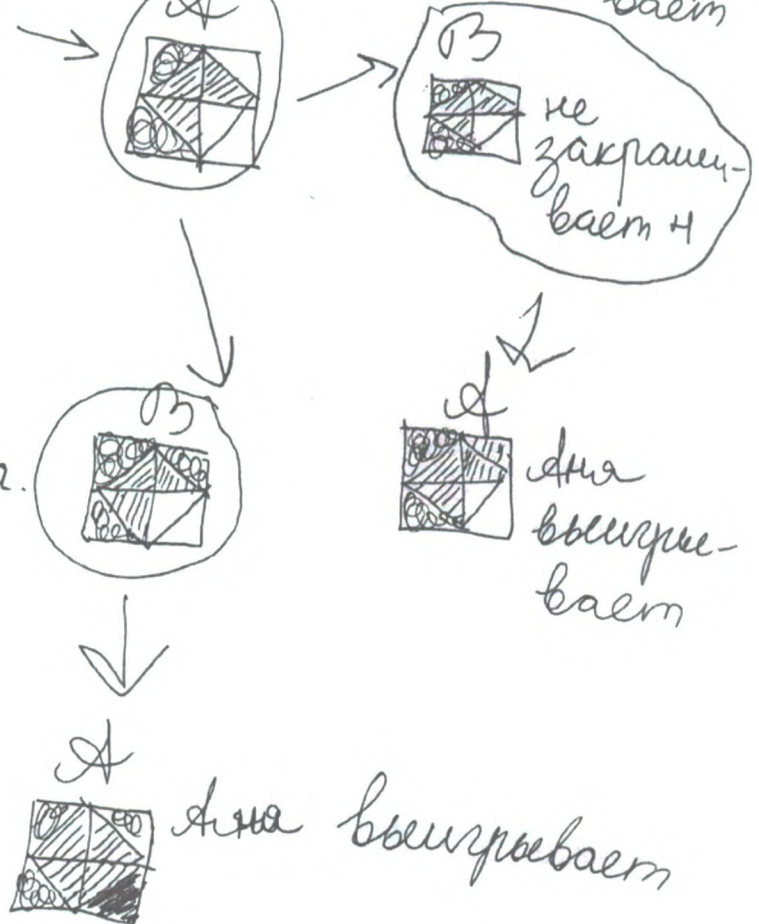 вает
А
В
не
закраши-
вает н
А
Аня
выигры-
вает
В
2.
А
Аня выигрывает